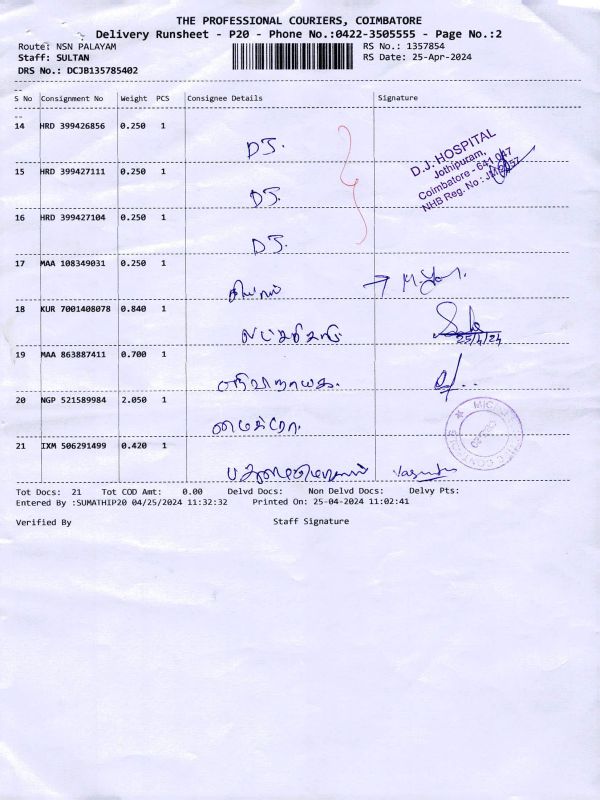 THE PROFESSIONAL COURIERS, COIMBATORE
Delivery Runsheet - P20 - Phone No.:0422-3505555 - Page No.:2
Route: NSN PALAYAM RS No.: 1357854
Staff: SULTAN RS Date: 25-Apr-2024
DRS No.: DCJB135785402
S No Consignment No Weight PCS Consignee Details Signature
14 HRD 399426856 0.250 1
DJ.
D.J. HOSPITAL
Jothipuram,
Coimbatore - 641 047
NHB Reg. No :
15 HRD 399427111 0.250 1
DJ.
16 HRD 399427104 0.250 1
DJ.
17 MAA 108349031 0.250 1
18 KUR 7001408078 0.840 1
25/4/24
19 MAA 863887411 0.700 1
20 NGP 521589984 2.050 1
மைக்ரோ.
21 IXM 506291499 0.420 1
Tot Docs: 21 Tot COD Amt: 0.00 Delvd Docs: Non Delvd Docs: Delvy Pts:
Entered By :SUMATHIP20 04/25/2024 11:32:32 Printed On: 25-04-2024 11:02:41
Verified By Staff Signature